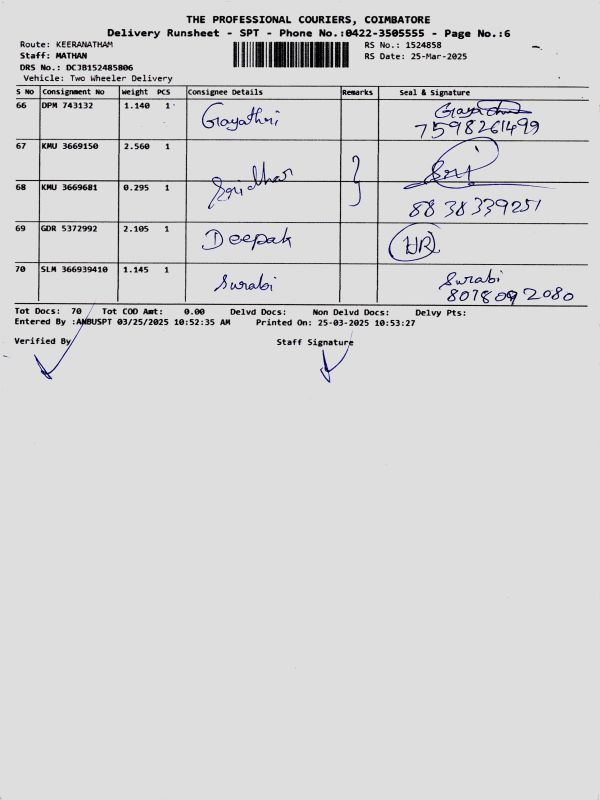 THE PROFESSIONAL COURIERS, COIMBATORE
Delivery Runsheet - SPT - Phone No.:0422-3505555 - Page No.:6
Route: KEERANATHAM RS No.: 1524858
Staff: MATHAN RS Date: 25-Mar-2025
DRS No.: DCJB152485806
Vehicle: Two Wheeler Delivery
S No Consignment No Weight PCS Consignee Details Remarks Seal & Signature
66 DPM 743132 1.140 1 Gayathri
7598261499
67 KMU 3669150 2.560 1
Sridhar Sri
68 KMU 3669681 0.295 1
8838339251
69 GDR 5372992 2.105 1 Deepak HR
70 SLM 366939410 1.145 1 Surabi Surabi
8078092080
Tot Docs: 70 Tot COD Amt: 0.00 Delvd Docs: Non Delvd Docs: Delvy Pts:
Entered By :ANBUSPT 03/25/2025 10:52:35 AM Printed On: 25-03-2025 10:53:27
Verified By Staff Signature